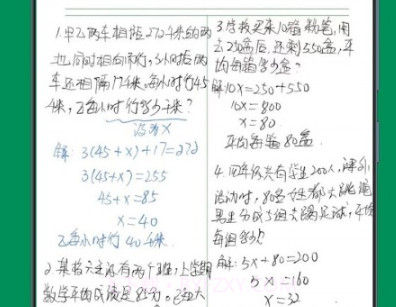 1.甲乙两车相距272千米的两
地,同时相向而行,3小时后两
车还相隔17千米,甲每小时行45
千米,乙每小时行多少千米?
设为X
解: 3(45+x)+17=272
3(45+x)=255
45+x=85
x=40
乙每小时行40千米.
2.某校六年有两个班,上学期
数学平均成绩是85分。已知六
3.学校买来10箱粉笔,用
去250盒后,还剩550盒,平
均每箱多少盒?
解10x=250+550
10x=800
x=80
平均每箱80盒
4.四年级共有学生200人,课外
活动时,80名女生都去跳绳
男生分成5组去踢足球,平均
每组多少人
解:5x+80=200
5x=160
x=32